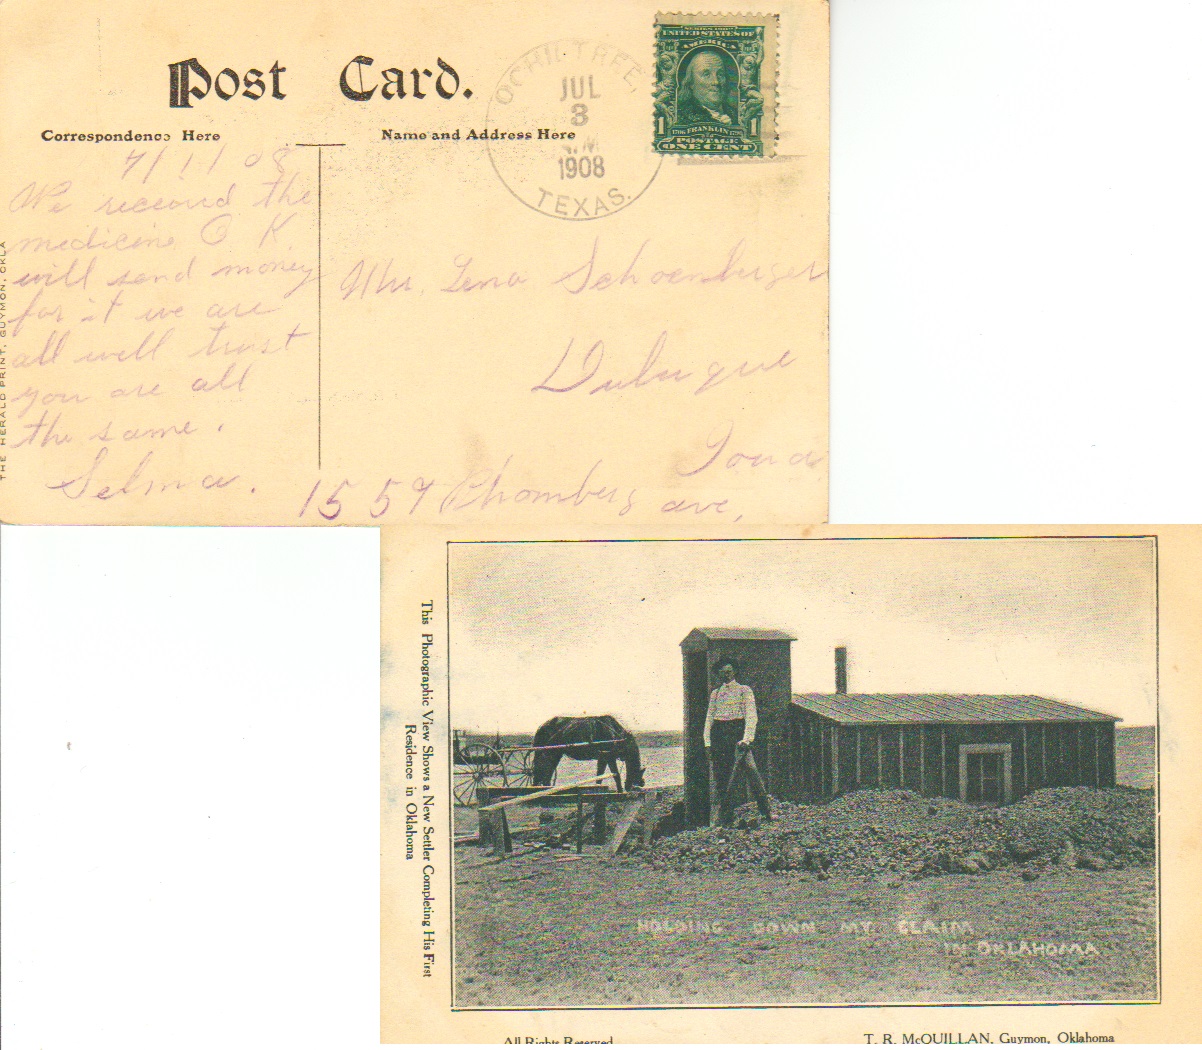 Post Card.
Correspondence Here
Name and Address Here
OCHILTREE,
JUL
3
M
1908
TEXAS.
SERIES 1902
UNITED STATES OF
AMERICA
1706 FRANKLIN 1790
1 1
POSTAGE
ONE CENT
7/1/08
We received the
medicine O K.
will send money
for it we are
all well trust
you are all
the same.
Selma.
Mrs. Lena Schoenberger
Dubuque
Iowa
1557 ave,
THE HERALD PRINT, GUYMON, OKLA
This Photographic View Shows a New Settler Completing His First
Residence in Oklahoma
HOLDING DOWN MY CLAIM
IN OKLAHOMA
All Rights Reserved
T. R. McQUILLAN, Guymon, Oklahoma